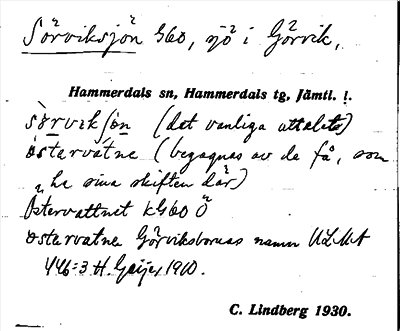 Sörviksjön G60, sjö i Görvik,
Hammerdals sn, Hammerdals tg, Jämtl. l.
sörviksjön (det vanliga uttalet)
östervatne (begagnas av de få, som
ha sina skiften där)
Östervattnet kG60 Ö
östervatne Görviksbornas namn ULMA
446:3 H. Geijer 1910.
C. Lindberg 1930.